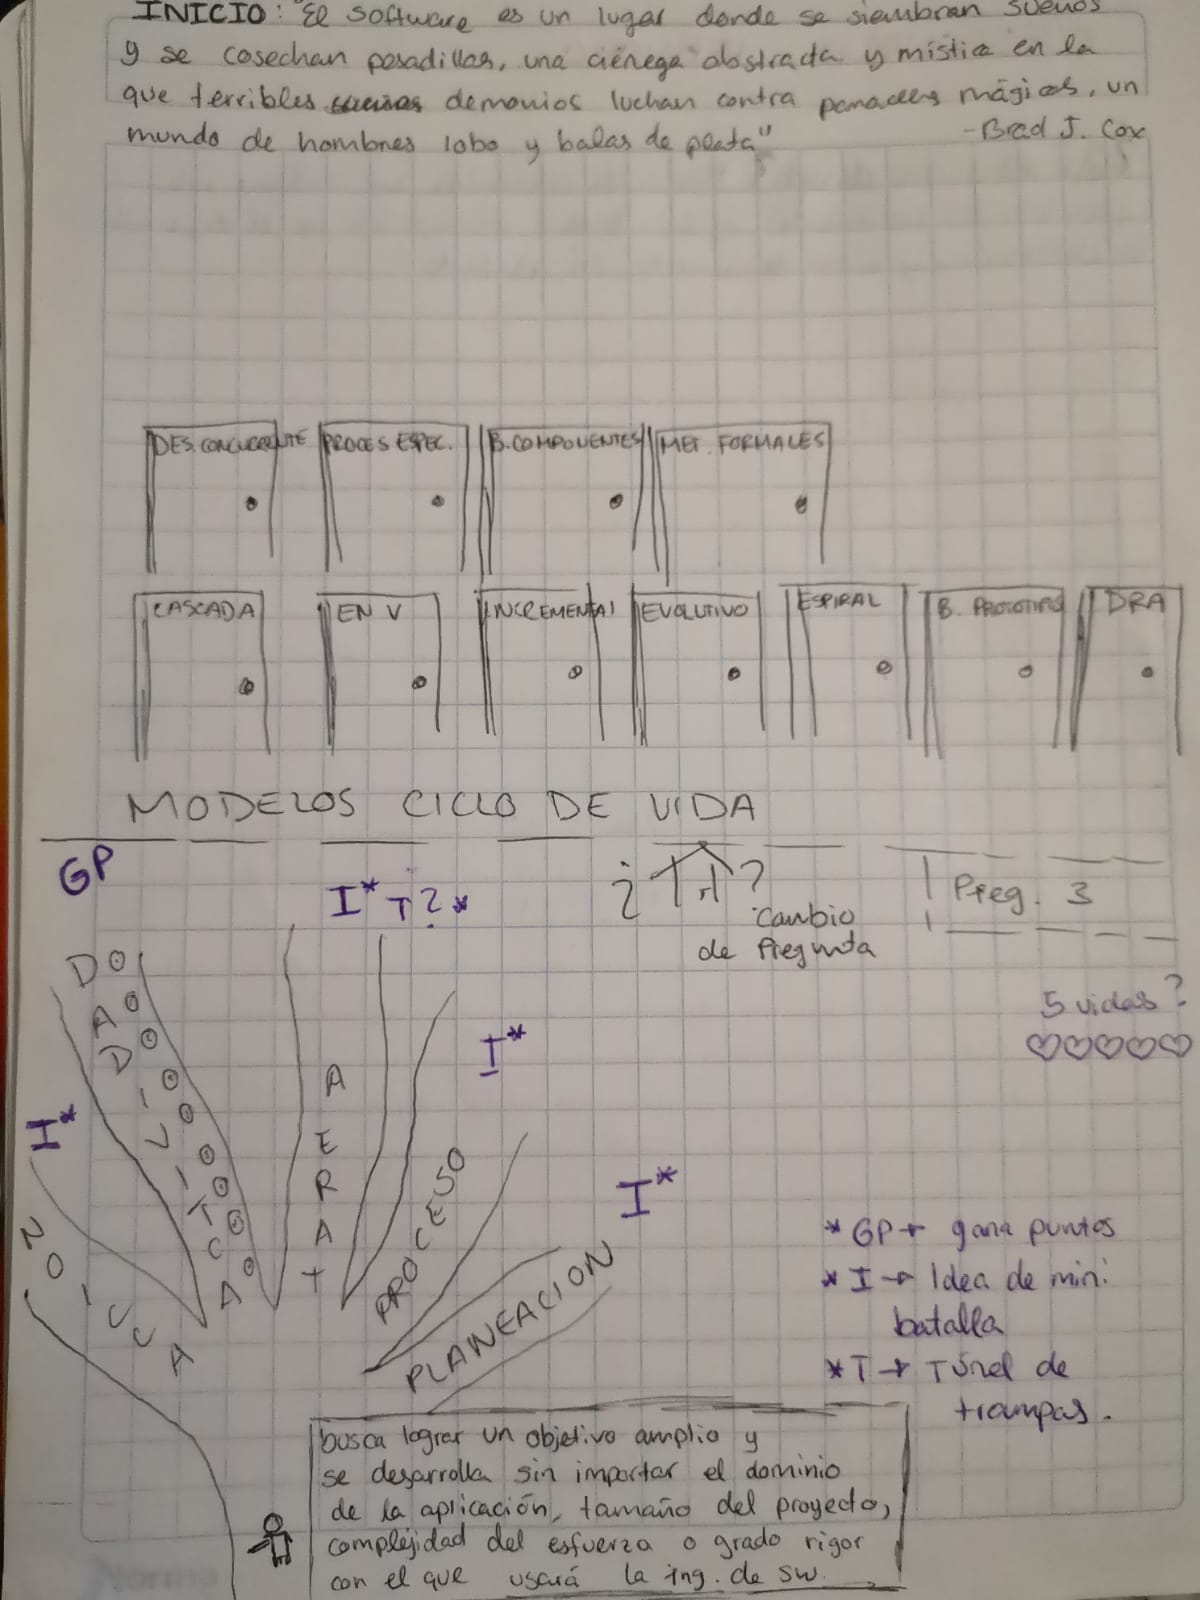 INICIO: "El Software es un lugar donde se siembran sueños
y se cosechan pesadillas, una ciénega abstrada y mística en la
que terribles demonios luchan contra panaceas mágicas, un
mundo de hombres lobo y balas de plata"
-Brad J. Cox
DES. CONCURRENTE PROCES ESPEC. B. COMPONENTES MET. FORMALES
CASCADA EN V INCREMENTAL EVOLUTIVO ESPIRAL B. PROTOTIPO DRA
MODELOS CICLO DE VIDA
GP
I* T?*
¿ ?
Cambio
de Pregunta
Preg. 3
5 vidas?
I*
I*
I*
ACCION
ACTIVIDAD
TAREA
PROCESO
PLANEACION
* GP → gana puntos
* I → Idea de mini
batalla
* T → Túnel de
trampas.
busca lograr un objetivo amplio y
se desarrolla sin importar el dominio
de la aplicación, tamaño del proyecto,
complejidad del esfuerza o grado rigor
con el que usará la ing. de SW.
Norma